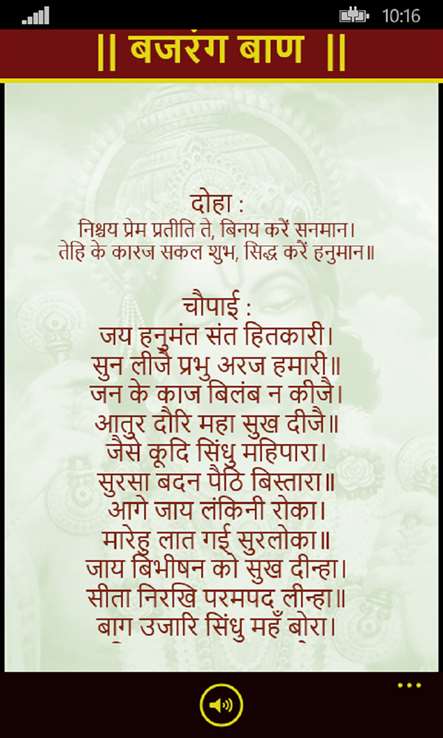 10:16
|| बजरंग बाण ||
दोहा :
निश्चय प्रेम प्रतीति ते, बिनय करैं सनमान।
तेहि के कारज सकल शुभ, सिद्ध करैं हनुमान॥
चौपाई :
जय हनुमंत संत हितकारी।
सुन लीजै प्रभु अरज हमारी॥
जन के काज बिलंब न कीजै।
आतुर दौरि महा सुख दीजै॥
जैसे कूदि सिंधु महिपारा।
सुरसा बदन पैठि बिस्तारा॥
आगे जाय लंकिनी रोका।
मारेहु लात गई सुरलोका॥
जाय बिभीषन को सुख दीन्हा।
सीता निरखि परमपद लीन्हा॥
बाग उजारि सिंधु महँ बोरा।